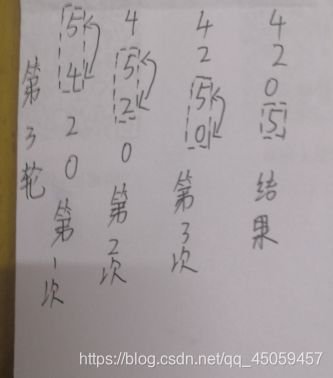 第3轮
5
4
2
0
第1次
4
5
2
0
第2次
4
2
5
0
第3次
4
2
0
5
结果
https://blog.csdn.net/qq_45059457